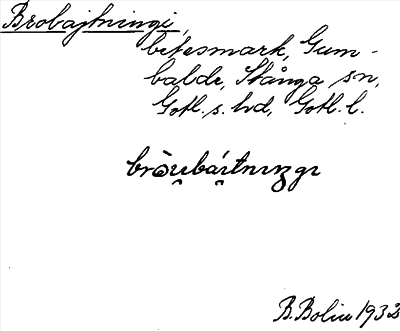 Brobajtningi,
betesmark, Gum-
balde, Stånga sn,
Gotl. s. hd, Gotl. l.
brōu̯bái̯tnıŋgı
B. Bolin 1933